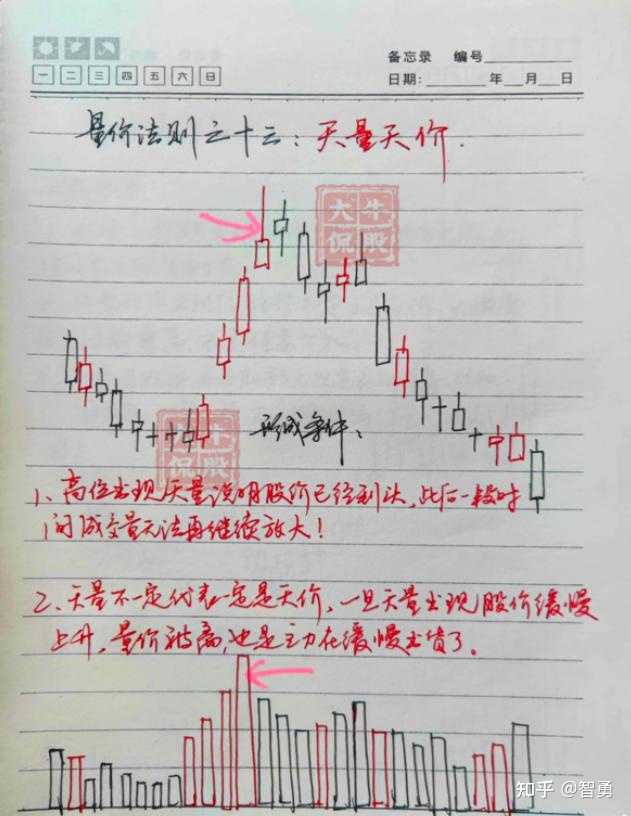 备忘录 编号
一 二 三 四 五 六 日
日期: 年 月 日
量价法则之十三：天量天价.
大牛
侃股
大牛
侃股
形成条件、
1、高位出现天量说明股价已经到头，此后一段时
间成交量无法再继续放大！
2、天量不一定代表一定是天价，一旦天量出现股价缓慢
上升，量价新高，也是主力在缓慢出货了。
知乎 @智勇